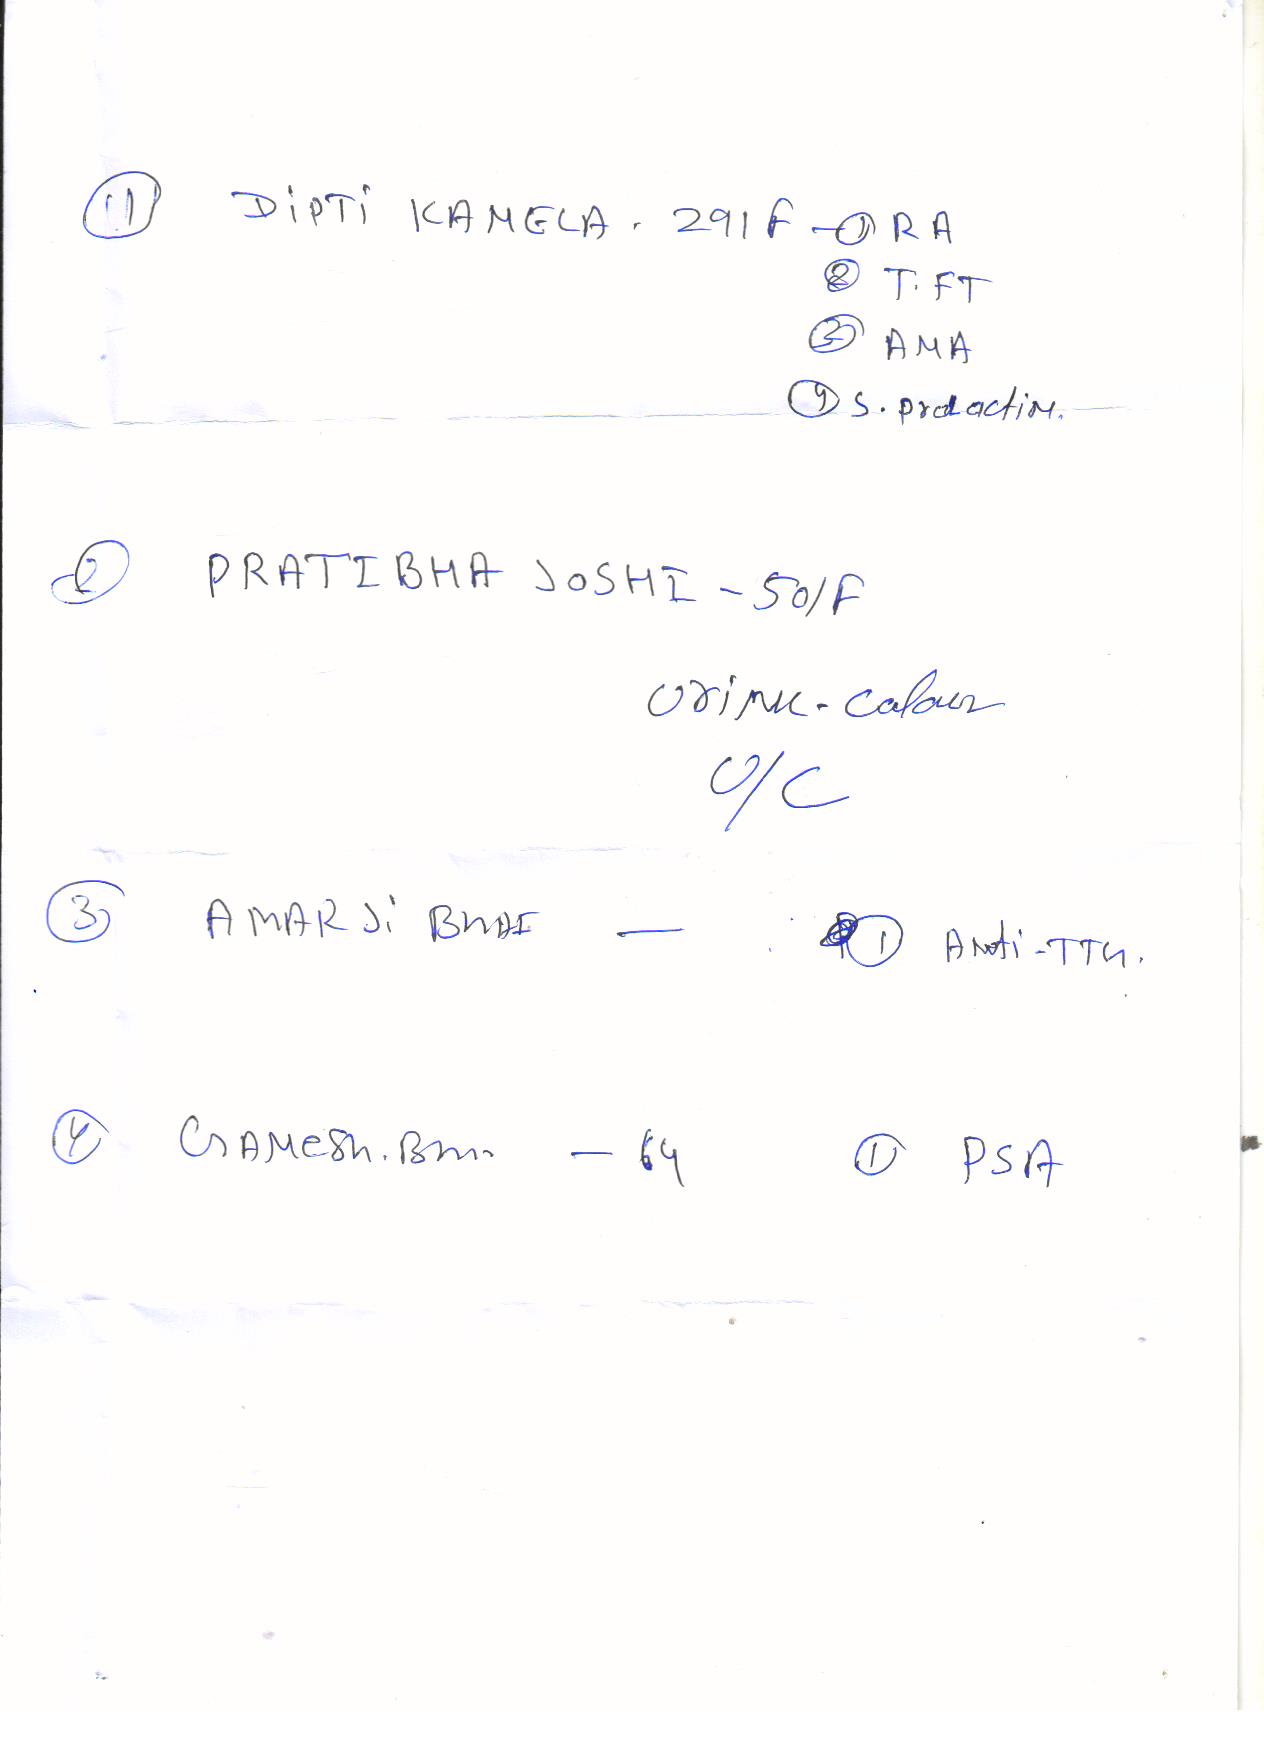 ① DIPTI KAMELA. 29/F - ① RA
② T.FT
③ AMA
④ S. prolactin.
② PRATIBHA JOSHI - 50/F
Urine - Colour
U/C
③ AMARJI BHAI — ① Anti-TTG.
④ GAMESH. — 64 ① PSA